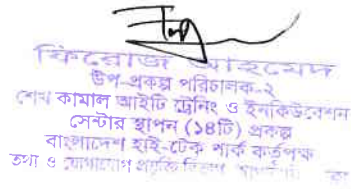 ফিরোজ আহমেদ
উপ-প্রকল্প পরিচালক-২
শেখ কামাল আইটি ট্রেনিং ও ইনকিউবেশন
সেন্টার স্থাপন (১৪টি) প্রকল্প
বাংলাদেশ হাই-টেক পার্ক কর্তৃপক্ষ
তথ্য ও যোগাযোগ প্রযুক্তি বিভাগ